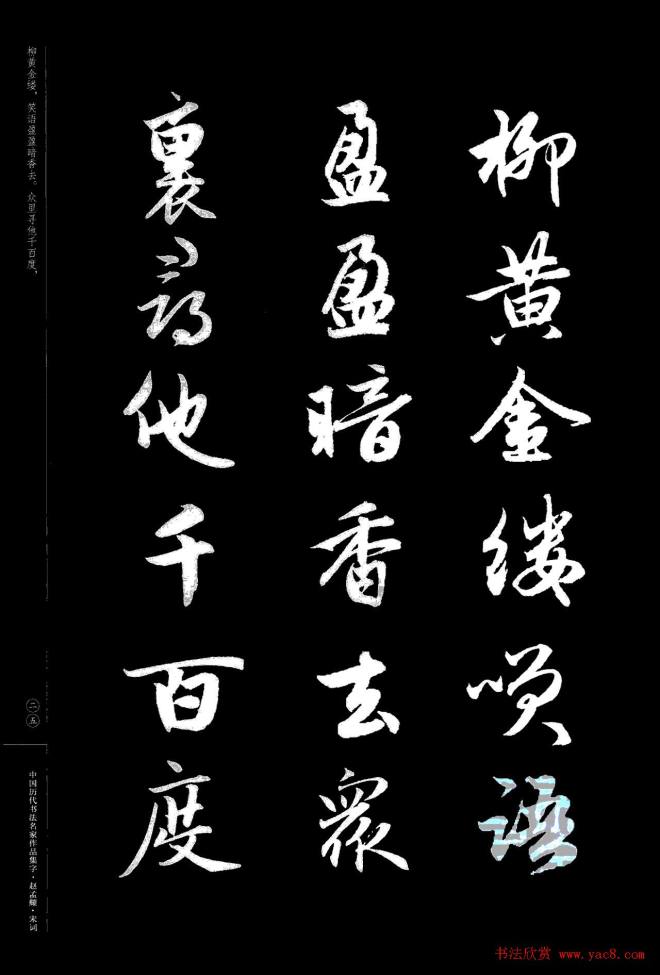 柳黄金缕咲语
盈盈暗香去眾
裏尋他千百度
柳黄金缕，笑语盈盈暗香去。众里寻他千百度，
二五
中国历代书法名家作品集字·赵孟頫·宋词
书法欣赏 www.yac8.com